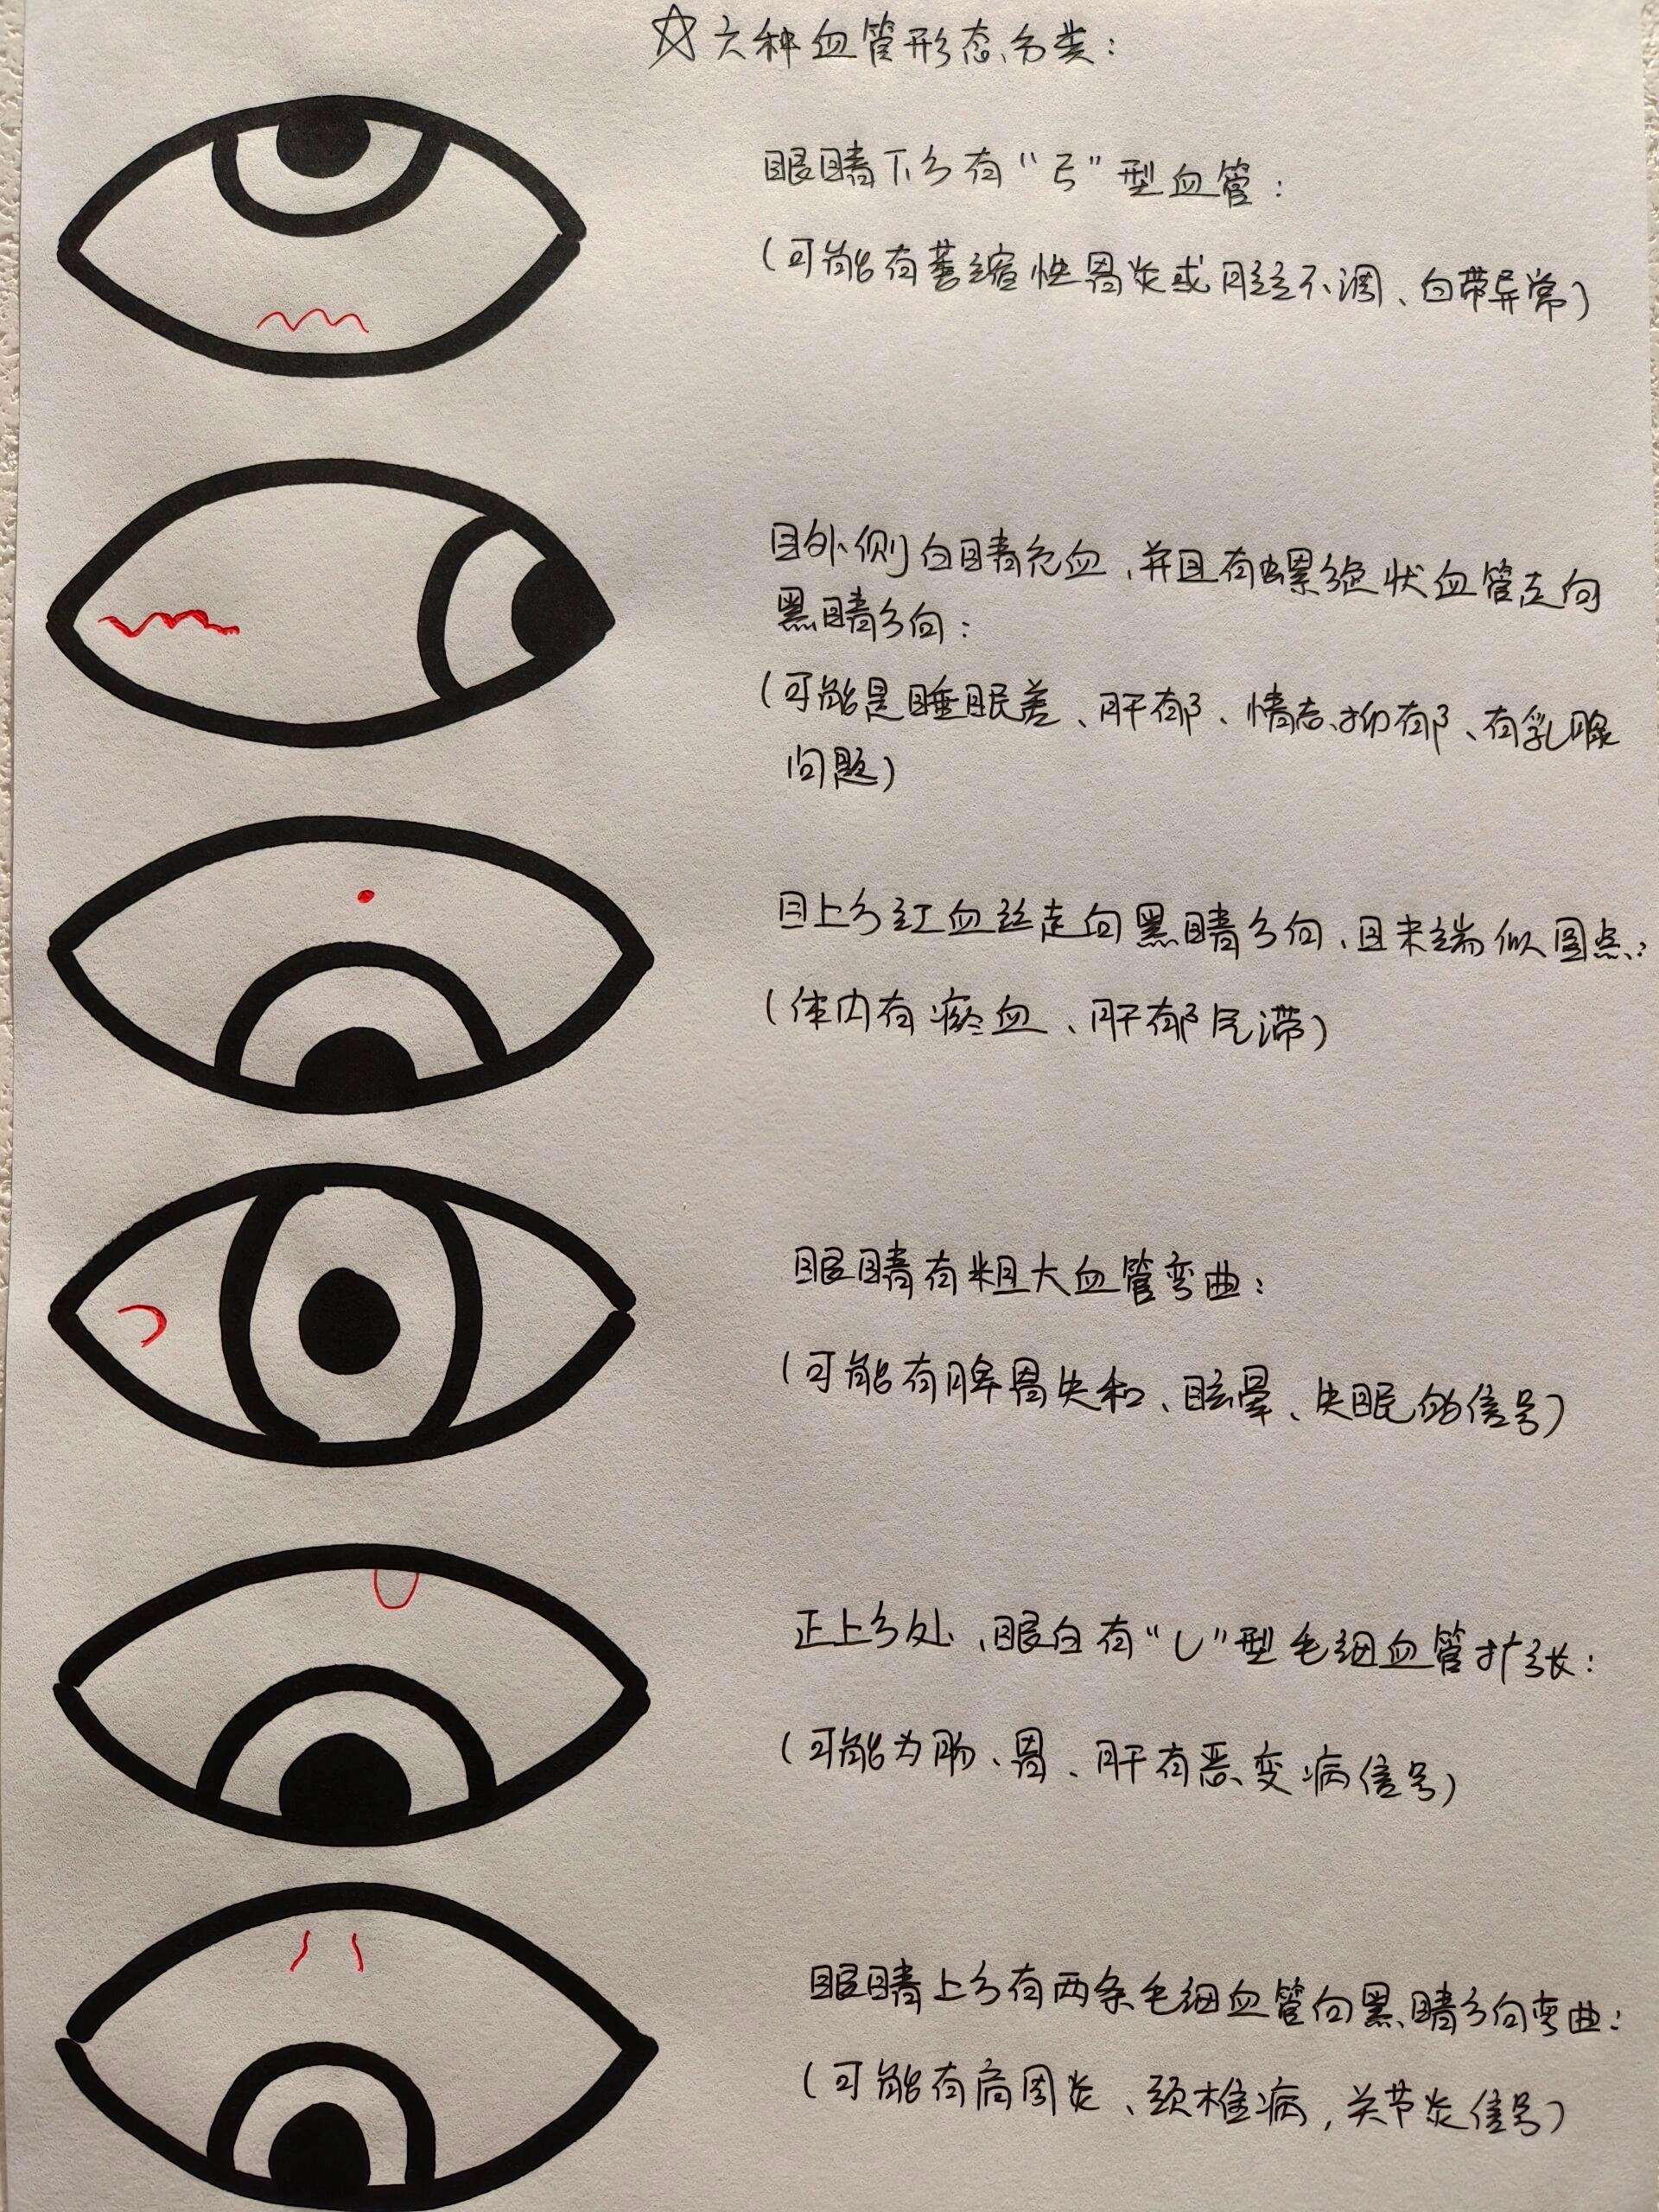 ☆六种血管形态分类:
眼睛下方有“弓”型血管:
(可能有萎缩性胃炎或月经不调、白带异常)
目外侧白睛充血,并且有螺旋状血管走向
黑睛方向:
(可能是睡眠差、肝郁、情志抑郁、有乳腺
问题)
目上方红血丝走向黑睛方向,且末端似圆点:
(体内有瘀血、肝郁气滞)
眼睛有粗大血管弯曲:
(可能有脾胃失和、眩晕、失眠的信号)
正上方处,眼白有“U”型毛细血管扩张:
(可能为肠、胃、肝有恶变病信号)
眼睛上方有两条毛细血管向黑睛方向弯曲:
(可能有肩周炎、颈椎病,关节炎信号)